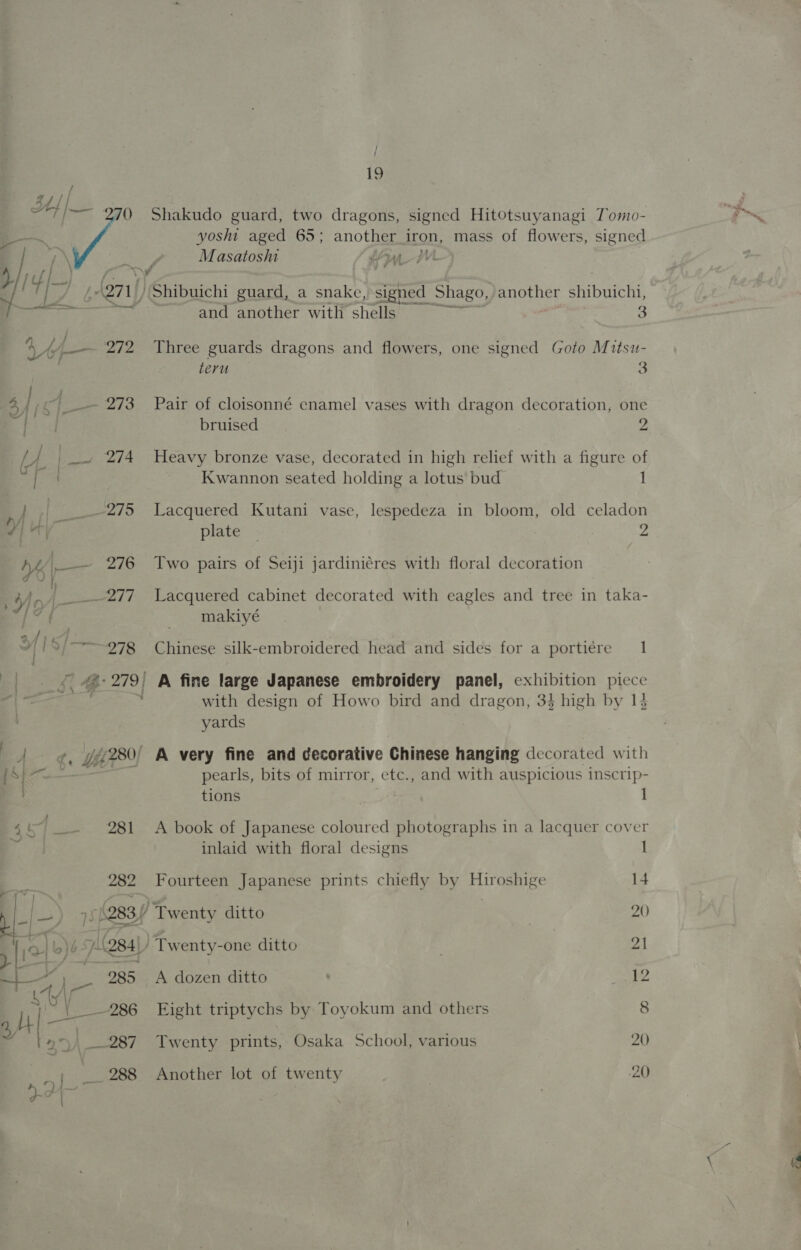 19
270 Shakudo guard, two dragons, signed Hitotsuyanagi Tomo-
yoshi aged 65; another iron, mass of flowers, signed
Masatoshi
271 Shibuichi guard, a snake, signed Shago, another shibuichi,
and another with shells 3
272 Three guards dragons and flowers, one signed Goto Mitsu-
teru 3
273 Pair of cloisonné enamel vases with dragon decoration, one
bruised 2
274 Heavy bronze vase, decorated in high relief with a figure of
Kwannon seated holding a lotus bud 1
275 Lacquered Kutani vase, lespedeza in bloom, old celadon
plate 2
276 Two pairs of Seiji jardinières with floral decoration
277 Lacquered cabinet decorated with eagles and tree in taka-
makiyé
278 Chinese silk-embroidered head and sides for a portiére 1
279 A fine large Japanese embroidery panel, exhibition piece
with design of Howo bird and dragon, 3½ high by 1½
yards
280 A very fine and decorative Chinese hanging decorated with
pearls, bits of mirror, etc., and with auspicious inscrip-
tions 1
281 A book of Japanese coloured photographs in a lacquer cover
inlaid with floral designs 1
282 Fourteen Japanese prints chiefly by Hiroshige 14
283 Twenty ditto 20
284 Twenty-one ditto 21
285 A dozen ditto 12
286 Eight triptychs by Toyokum and others 8
287 Twenty prints, Osaka School, various 20
288 Another lot of twenty 20